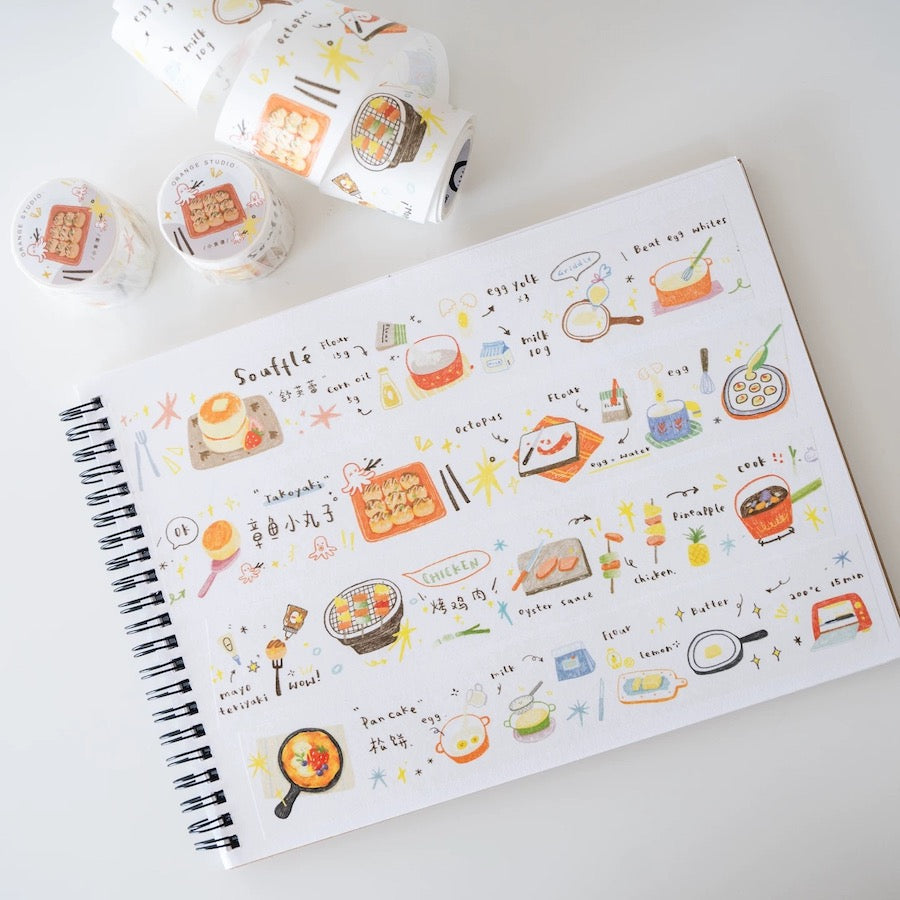 egg yo
milk
10g
octopus
ORANGE STUDIO
ORANGE STUDIO
Beat egg whites
Griddle
egg yolk
×3
milk
10g
Soufflé
"舒芙蕾"
Flour
15g
corn oil
5g
egg
Flour
octopus
egg + water
OK
"Takoyaki"
章鱼小丸子
cook
Pineapple
chicken
oyster sauce
CHICKEN
烤鸡肉!
mayo
teriyaki
WOW!
200°C 15min
Butter
lemon
Flour
milk
egg
"Pancake"
松饼